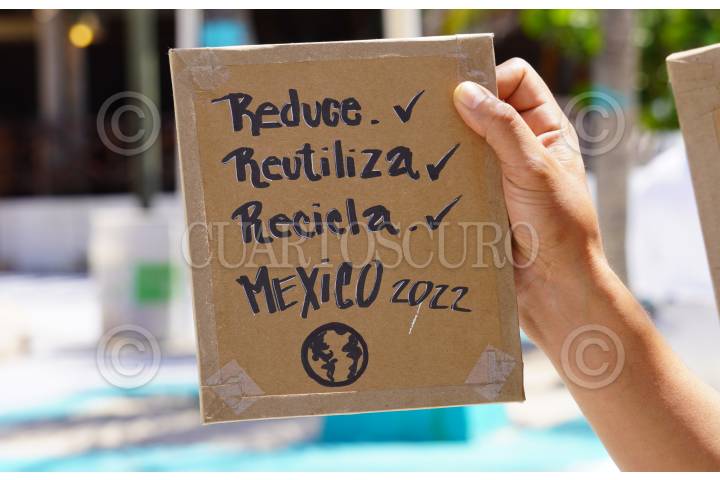 Reduce. ✓
Reutiliza ✓
Recicla. ✓
CUARTOSCURO
MEXICO 2022